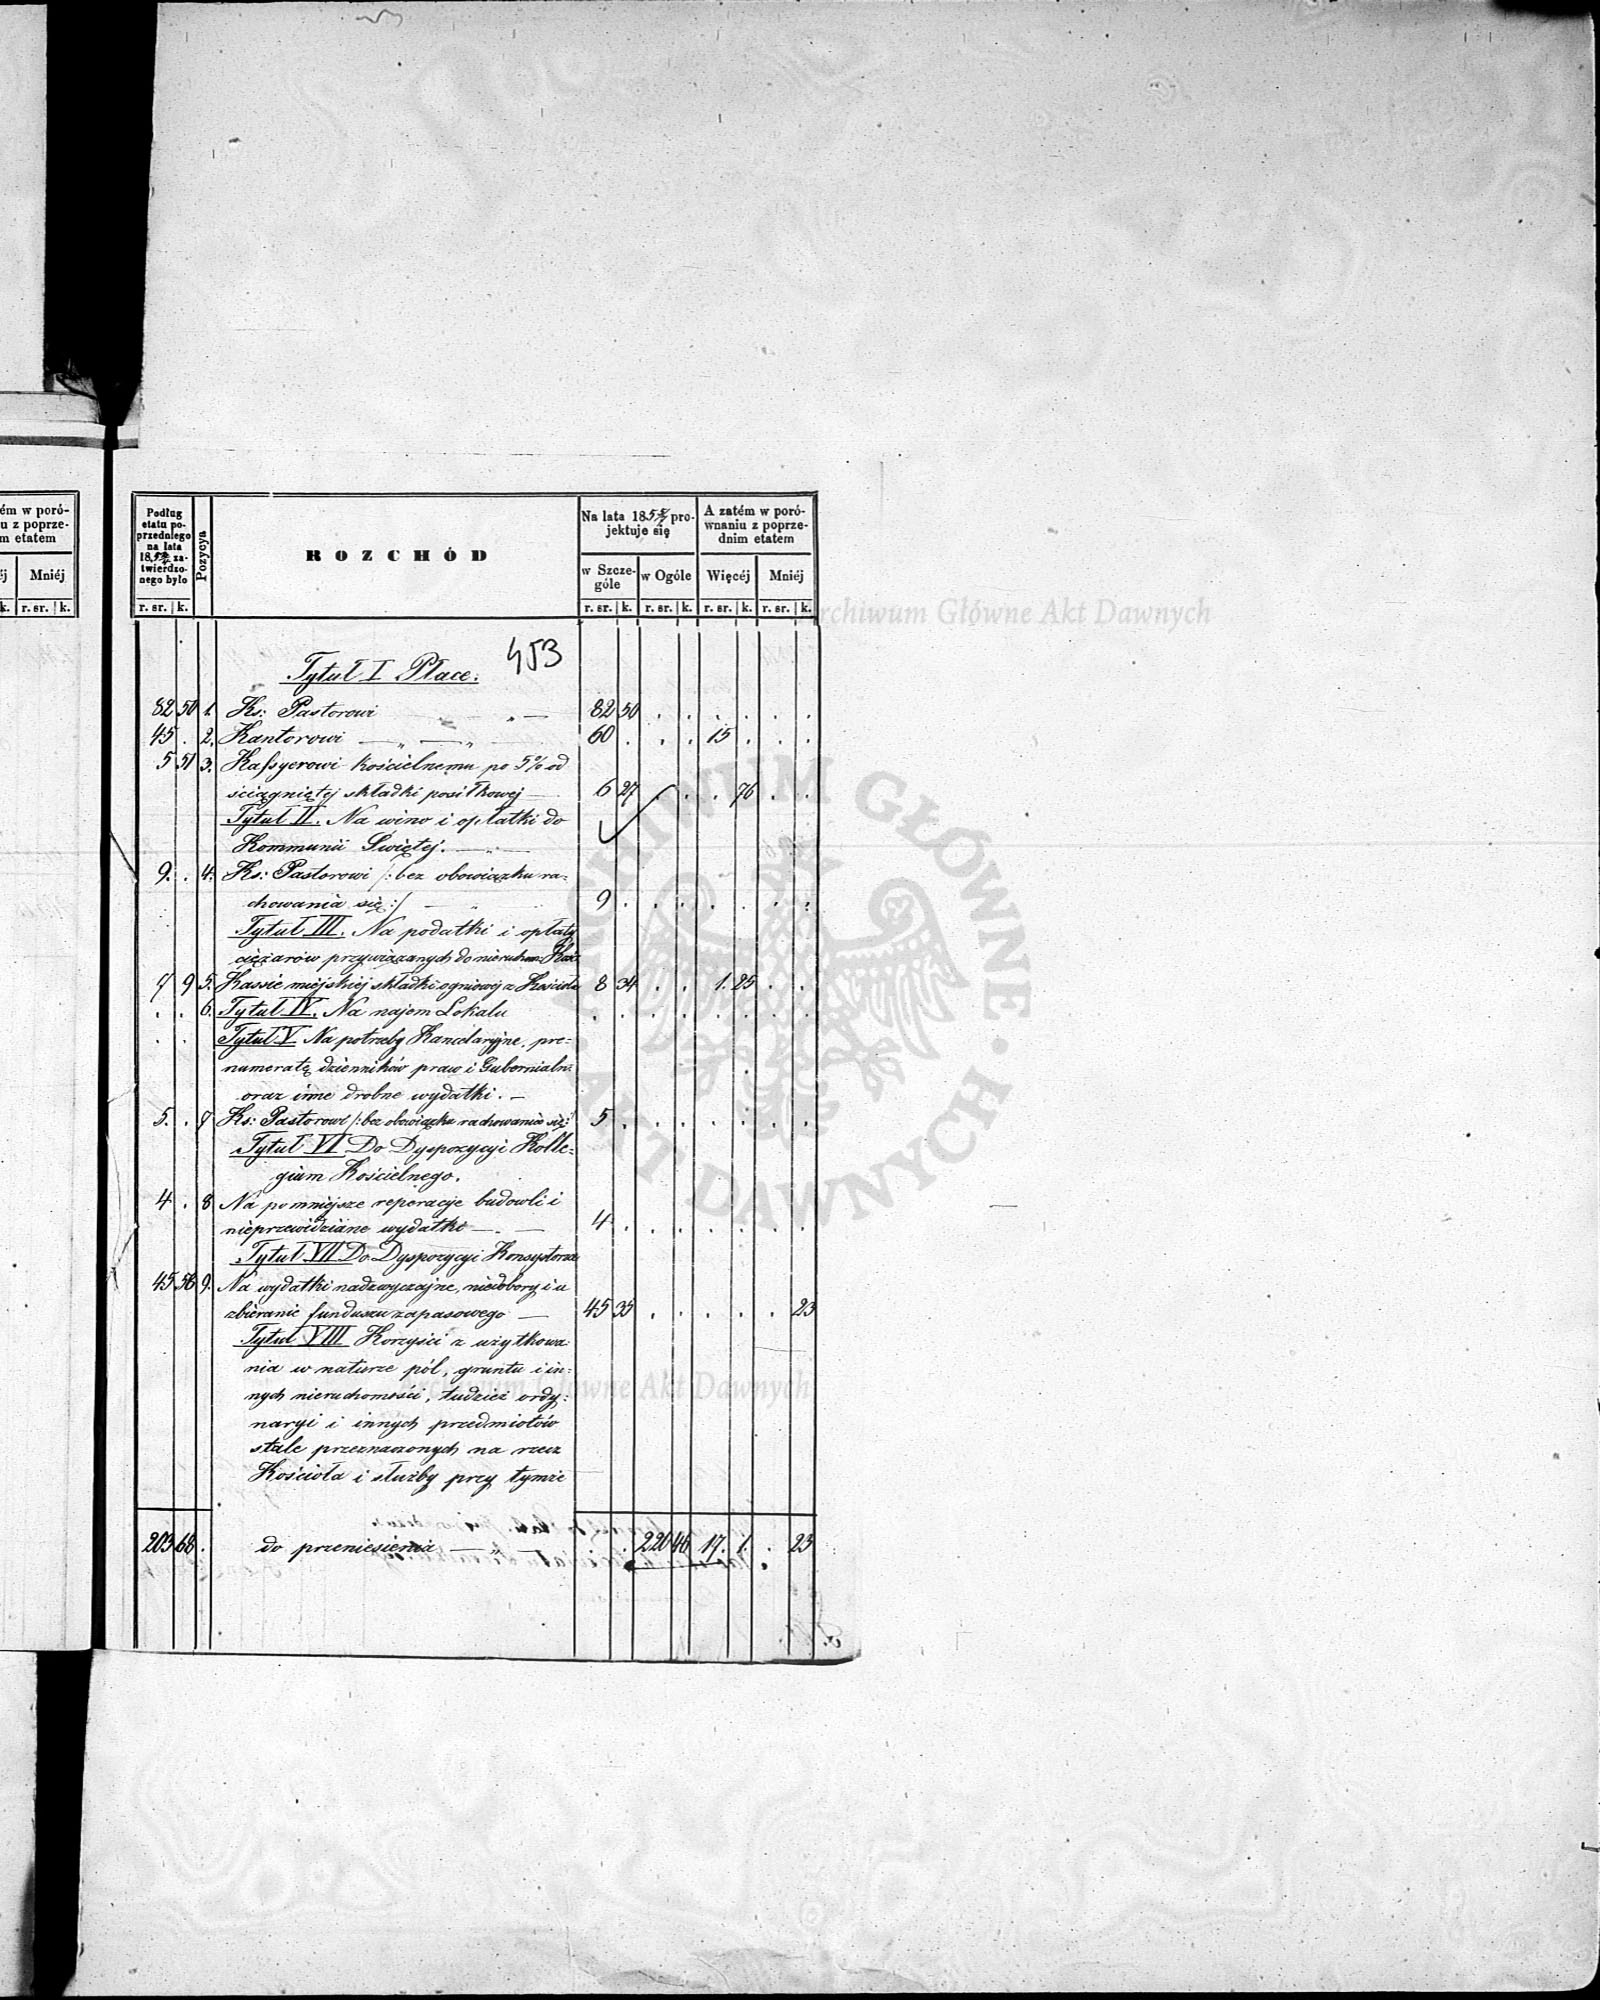 ém w poró-
u z poprze-
m etatem
éj Mniéj
k. r. sr. k.
Podług etatu poprzedniego na lata 185 zatwierdzonego było
Pozycya
ROZCHÓD
Na lata 185 projektuje się
A zatém w porównaniu z poprzednim etatem
w Szczególe w Ogóle Więcéj Mniéj
r. sr. k. r. sr. k. r. sr. k. r. sr. k. r. sr. k.
453
Tytuł I Płace.
82 50 1. Ks: Pastorowi 82 50
45 . 2. Kantorowi 60 . 15
5 51 3. Kassyerowi Kościelnemu po 5% od
ściągniętej składki posiłkowej 6 27 . 76
Tytuł II. Na wino i opłatki do
Kommunii Świętej.
9. . 4. Ks: Pastorowi /: bez obowiązku ra-
chowania się :/ 9
Tytuł III. Na podatki i opłaty
ciężarów przywiązanych do nieruchom: Kość
7 9 5. Kassie miejskiej składki ogniowej z Kościoła 8 34 1. 25
. . 6. Tytuł IV. Na najem Lokalu
Tytuł V. Na potrzeby Kancelaryjne, pre-
numeratę dzienników praw i Gubernialn:
oraz inne drobne wydatki.
5. . 7 Ks: Pastorowi /: bez obowiązku rachowania się :/ 5
Tytuł VI Do Dyspozycyi Kolle-
gium Kościelnego.
4 . 8 Na pomniejsze reperacye budowli i
nieprzewidziane wydatki 4
Tytuł VII Do Dyspozycyi Konsystorza
45 58 9. Na wydatki nadzwyczajne, niedobory i u
zbieranie funduszu zapasowego 45 35 23
Tytuł VIII Korzyści z użytkowa-
nia w naturze pól, gruntu i in-
nych nieruchomości, tudzież ordy-
naryi i innych przedmiotów
stale przeznaczonych na rzecz
Kościoła i służby przy tymże
203 68 do przeniesienia 220 46 17. 1. 23
Archiwum Główne Akt Dawnych
ARCHIWUM GŁÓWNE AKT DAWNYCH
Archiwum Główne Akt Dawnych